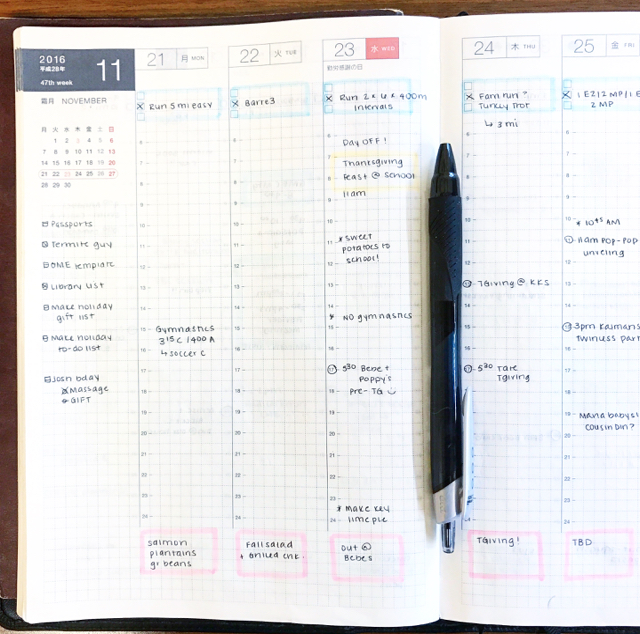 2016
平成28年
11
47th week
霜月 NOVEMBER
月 火 水 木 金 土 日
1 2 3 4 5 6
7 8 9 10 11 12 13
14 15 16 17 18 19 20
21 22 23 24 25 26 27
28 29 30
Passports
Termite guy
OME template
Library List
Make holiday
gift list
Make holiday
to-do list
Josh bday
Massage
GIFT
21 月 MON
Run 5 mi easy
Gymnastics
3¹⁵ C / 400 A
↳ soccer C
salmon
plantains
gr beans
22 火 TUE
Barre3
Fall salad
+ Grilled chk.
23 水 WED
勤労感謝の日
Run 2 x 4 x 400m
Intervals
Day OFF!
Thanksgiving
feast @ school
11am
* sweet
potatoes to
school!
* NO gymnastics
5³⁰ Bebe +
Poppy's
pre-TG ☺
* Make key
lime pie
out @
Bebes
24 木 THU
Fam run?
Turkey Trot
↳ 3 mi
TGiving @ KKS
5³⁰ Tate
TGiving
TGiving!
25 金 FRI
1 EZ/2 MP/1 E
2 MP
* 10⁴⁵ AM
11am Pop-Pop
unveiling
3pm Kaimans
Twinless part
Maria babysi
cousin din?
TBD